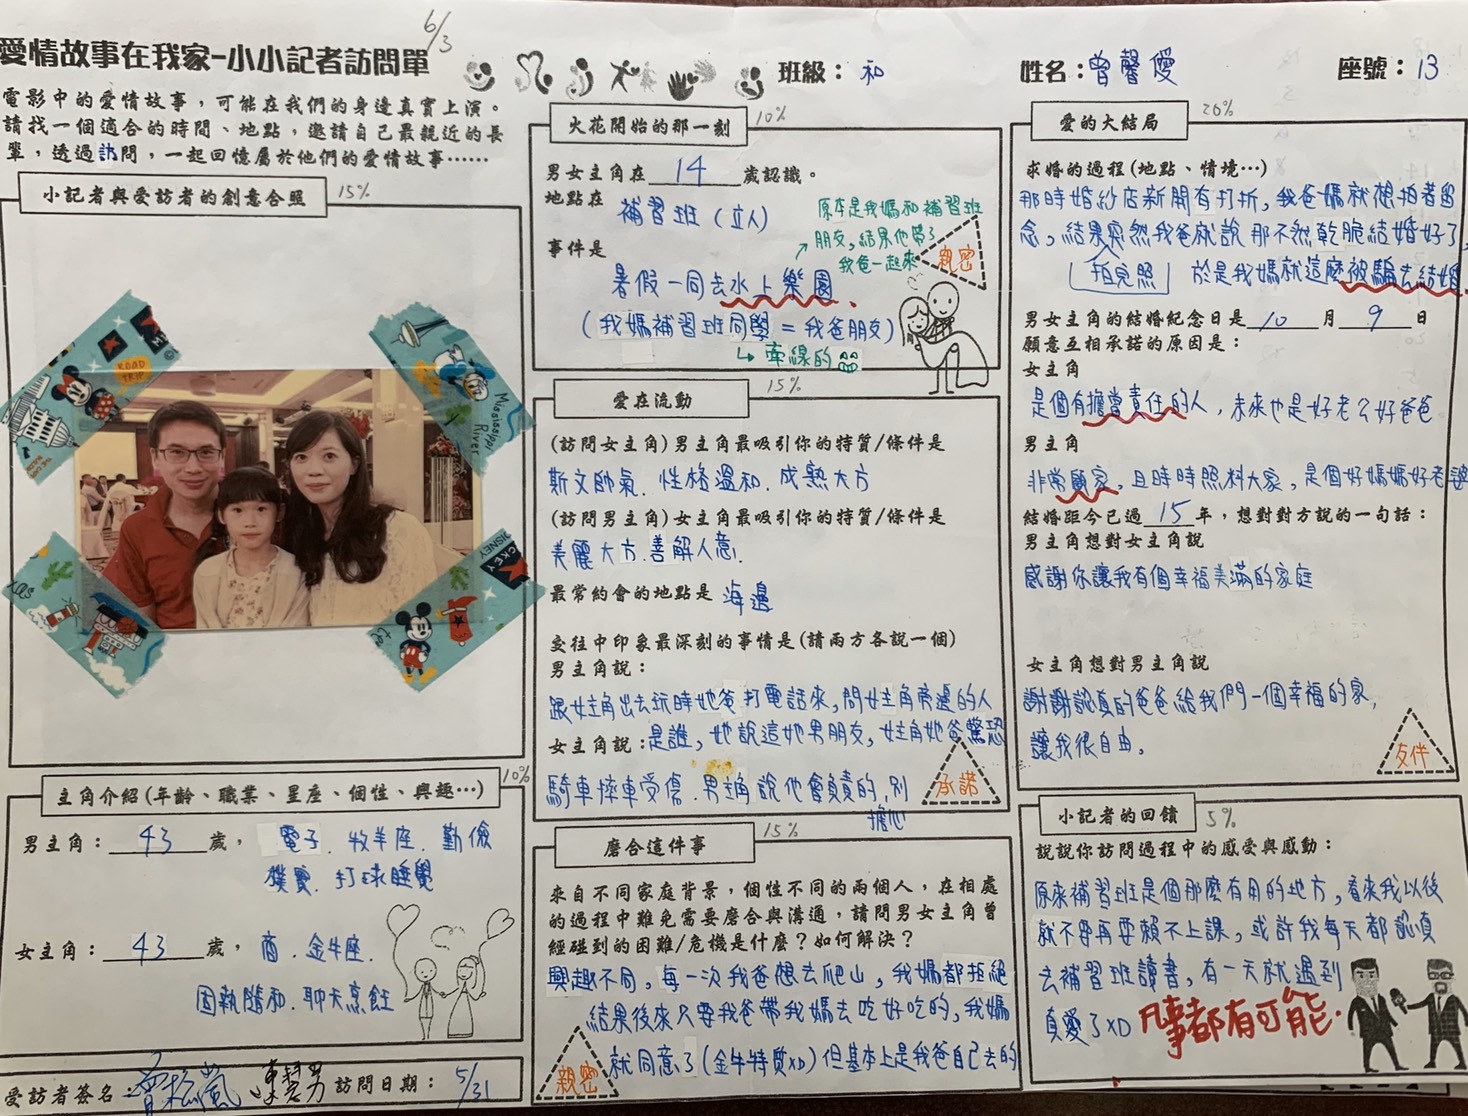 6/3
愛情故事在我家-小小記者訪問單
班級：和
姓名：曾馨優
座號：13
電影中的愛情故事，可能在我們的身邊真實上演。
請找一個適合的時間、地點，邀請自己最親近的長
輩，透過訪問，一起回憶屬於他們的愛情故事……
小記者與受訪者的創意合照 15%
ROAD
TRIP
Mississippi
River
DISNEY
MICKEY
主角介紹(年齡、職業、星座、個性、興趣…) 10%
男主角：43歲，電子、牧羊座、勤儉
樸實、打球睡覺
女主角：43歲，商、金牛座、
固執隨和、聊天烹飪
受訪者簽名：
訪問日期：5/31
火花開始的那一刻 10%
男女主角在14歲認識。
地點在 補習班（立人）
原本是我媽和補習班
朋友，結果他帶了
我爸一起來
親密
事件是
暑假一同去水上樂園
(我媽補習班同學＝我爸朋友)
↳牽線的
愛在流動 15%
(訪問女主角)男主角最吸引你的特質/條件是
斯文帥氣、性格溫和、成熟大方
(訪問男主角)女主角最吸引你的特質/條件是
美麗大方、善解人意
最常約會的地點是 海邊
交往中印象最深刻的事情是(請兩方各說一個)
男主角說：
跟女主角出去玩時她爸打電話來，問女主角旁邊的人
是誰，她說這她男朋友，女主角她爸驚恐
女主角說：
騎車摔車受傷、男主角說他會負責的，別
擔心
承諾
磨合這件事 15%
來自不同家庭背景，個性不同的兩個人，在相處
的過程中難免需要磨合與溝通，請問男女主角曾
經碰到的困難/危機是什麼？如何解決？
興趣不同，每一次我爸想去爬山，我媽都拒絕
結果後來只要我爸帶我媽去吃好吃的，我媽
就同意了(金牛特質XD)但基本上是我爸自己去的
親密
愛的大結局 20%
求婚的過程(地點、情境…)
那時婚紗店新開有打折，我爸媽就想拍著留
念，結果突然我爸就說那不然乾脆結婚好了，
拍完照
於是我媽就這麼被騙去結婚
男女主角的結婚紀念日是10月9日
願意互相承諾的原因是：
女主角
是個有擔當責任的人，未來也是好老公好爸爸
男主角
非常顧家，且時時照料大家，是個好媽媽好老婆
結婚距今已過15年，想對對方說的一句話：
男主角想對女主角說
感謝你讓我有個幸福美滿的家庭
女主角想對男主角說
謝謝認真的爸爸給我們一個幸福的家，
讓我很自由。
友伴
小記者的回饋 5%
說說你訪問過程中的感受與感動：
原來補習班是個那麼有用的地方，看來我以後
就不要再耍賴不上課，或許我每天都認真
去補習班讀書，有一天就遇到
真愛了XD 凡事都有可能.